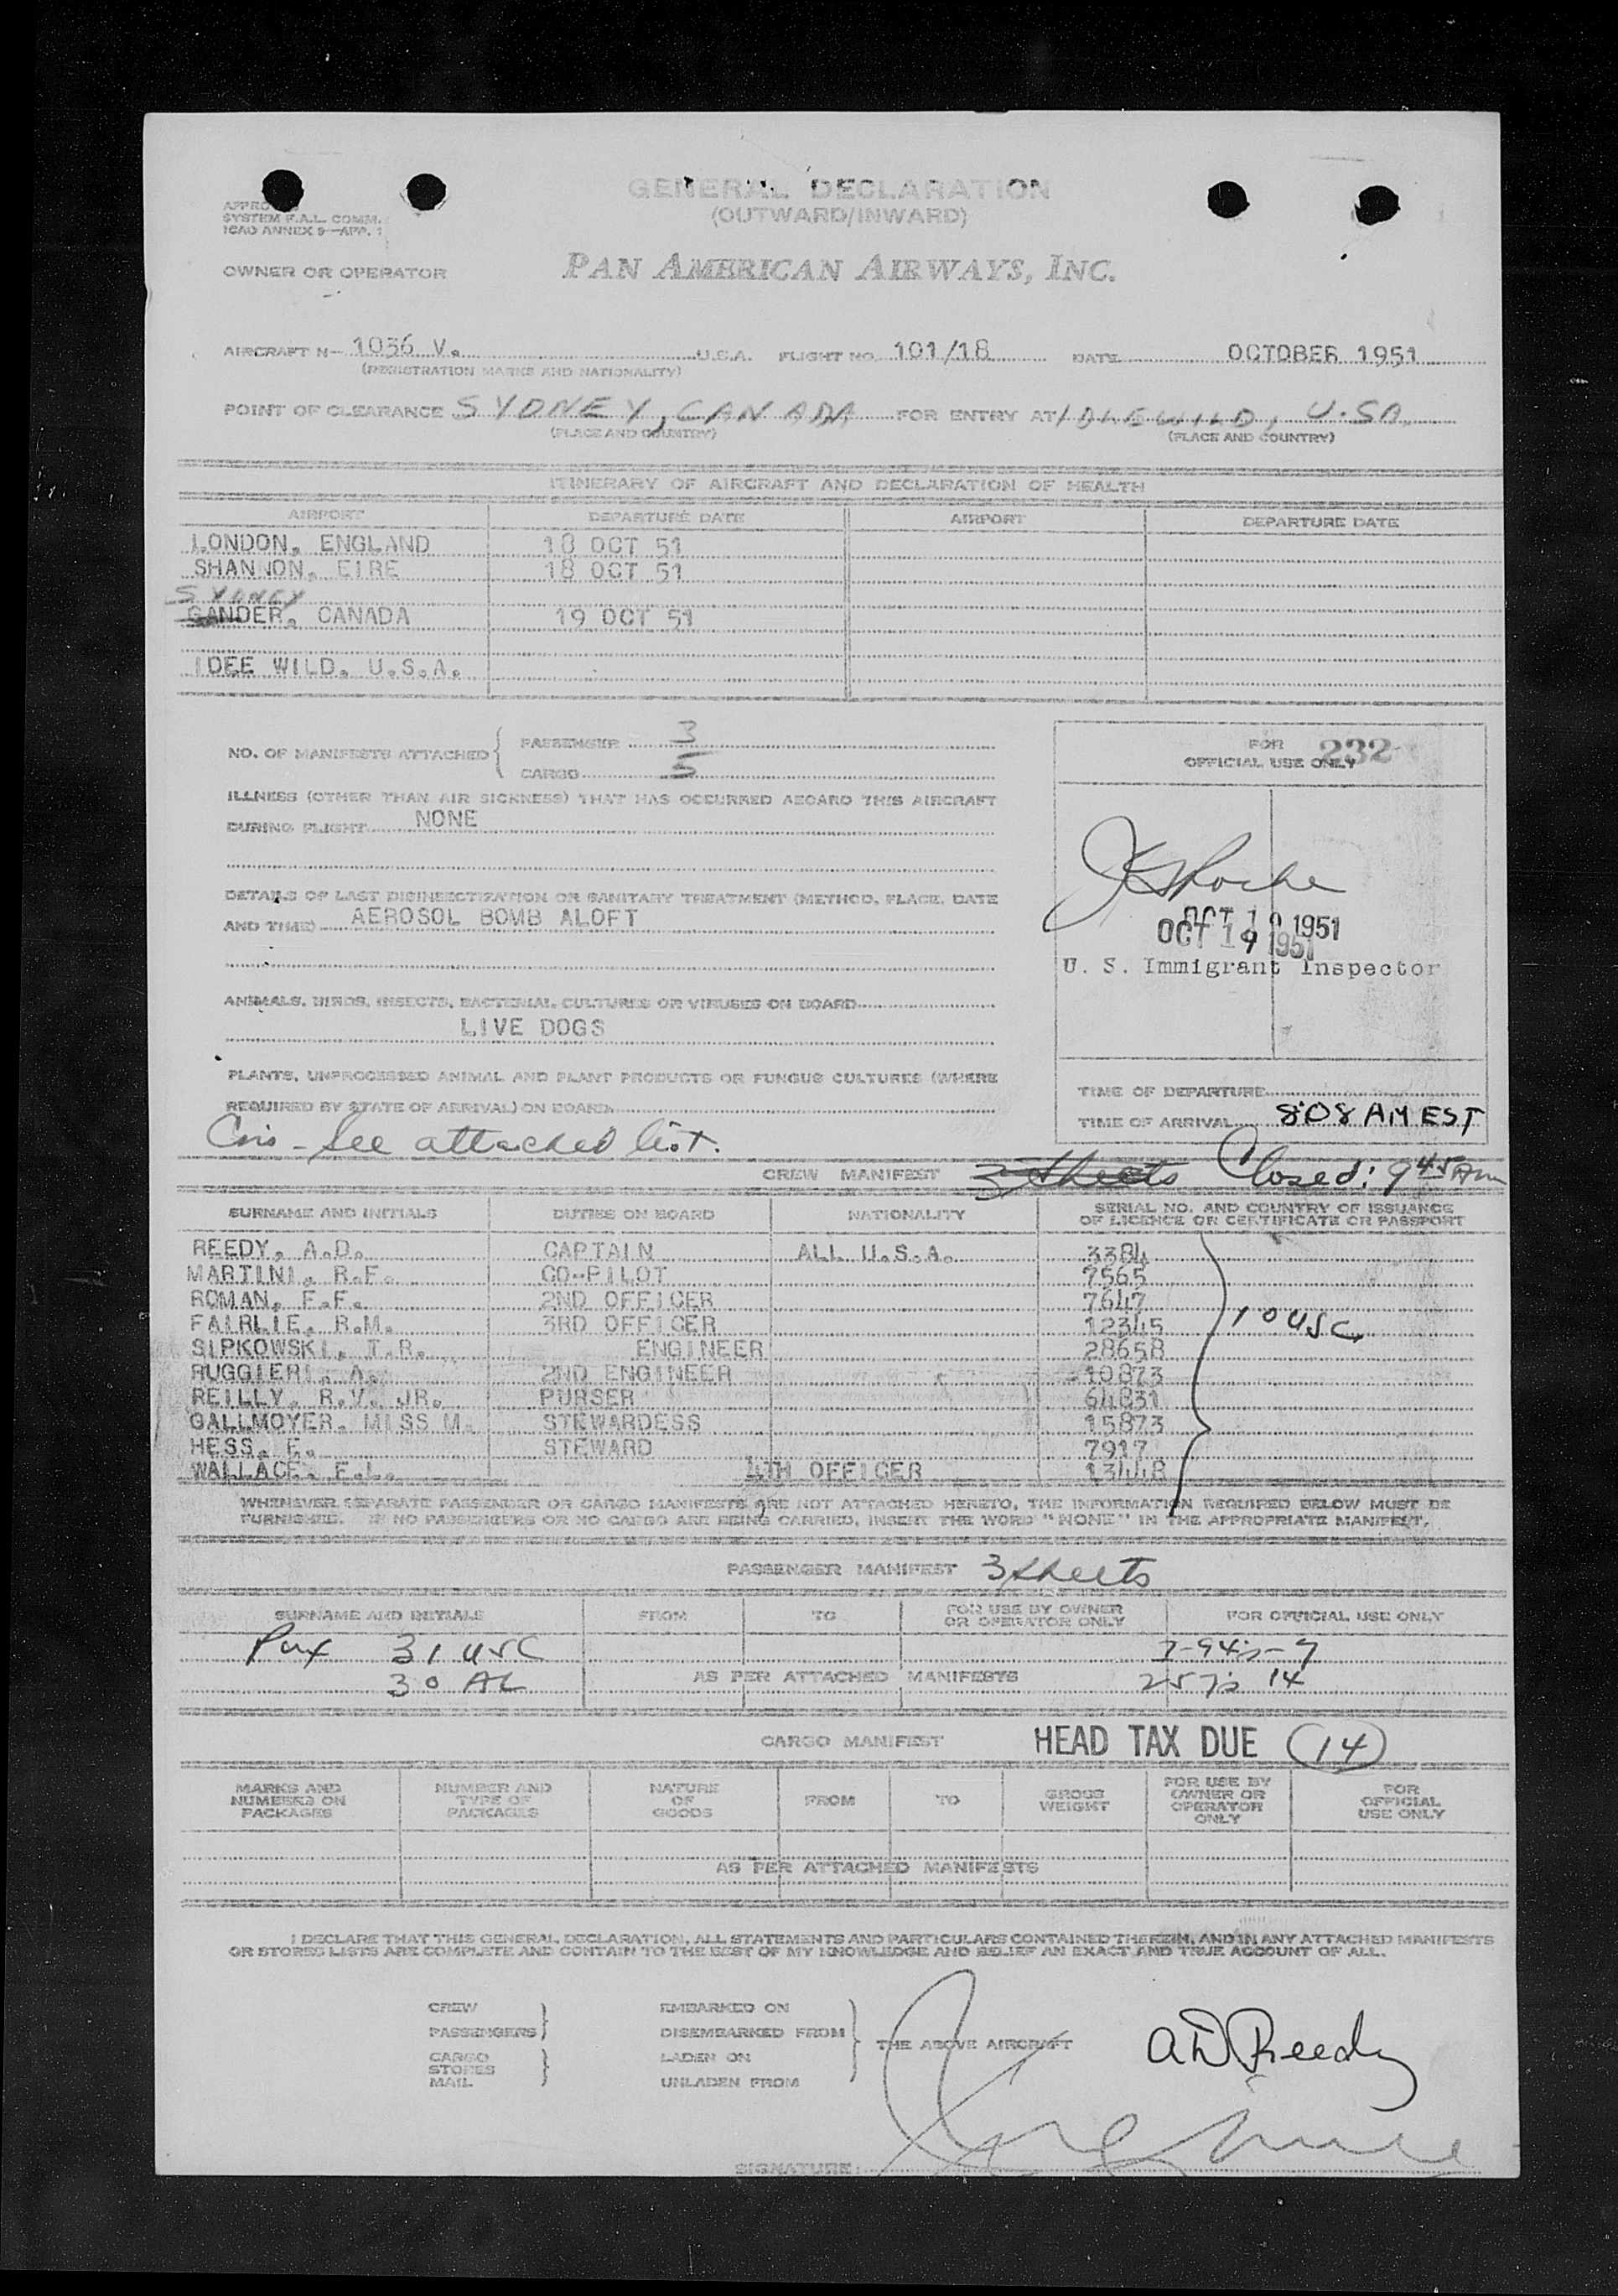 GENERAL DECLARATION
(OUTWARD/INWARD)
SYSTEM F.A.L. COMM.
ICAO ANNEX 9—APP. 1
OWNER OR OPERATOR PAN AMERICAN AIRWAYS, INC.
AIRCRAFT N- 1036 V. U.S.A. FLIGHT NO. 101/18 DATE OCTOBER 1951
(REGISTRATION MARKS AND NATIONALITY)
POINT OF CLEARANCE SYDNEY, CANADA FOR ENTRY AT IDLEWILD, U.SA.
(PLACE AND COUNTRY) (PLACE AND COUNTRY)
ITINERARY OF AIRCRAFT AND DECLARATION OF HEALTH
AIRPORT DEPARTURE DATE AIRPORT DEPARTURE DATE
LONDON, ENGLAND 18 OCT 51
SHANNON, EIRE 18 OCT 51
SYDNEY
GANDER, CANADA 19 OCT 51
IDEE WILD, U.S.A.
NO. OF MANIFESTS ATTACHED { PASSENGER 3
CARGO 5
FOR OFFICIAL USE ONLY 232
ILLNESS (OTHER THAN AIR SICKNESS) THAT HAS OCCURRED ABOARD THIS AIRCRAFT
DURING FLIGHT NONE
DETAILS OF LAST DISINSECTIZATION OR SANITARY TREATMENT (METHOD, PLACE, DATE
AND TIME) AEROSOL BOMB ALOFT
OCT 19 1951
OCT 19 1951
U. S. Immigrant Inspector
ANIMALS, BIRDS, INSECTS, BACTERIAL CULTURES OR VIRUSES ON BOARD
LIVE DOGS
PLANTS, UNPROCESSED ANIMAL AND PLANT PRODUCTS OR FUNGUS CULTURES (WHERE
REQUIRED BY STATE OF ARRIVAL) ON BOARD
TIME OF DEPARTURE
TIME OF ARRIVAL 8:08 AM EST
See attached list.
CREW MANIFEST 3 sheets Closed: 9 45 Am
SURNAME AND INITIALS DUTIES ON BOARD NATIONALITY SERIAL NO. AND COUNTRY OF ISSUANCE
OF LICENCE OR CERTIFICATE OR PASSPORT
REEDY, A.D. CAPTAIN ALL U.S.A. 3384
MARTINI, R.F. CO-PILOT 7565
ROMAN, F.F. 2ND OFFICER 7647
FAIRLIE, R.M. 3RD OFFICER 12345 10 USC
SIPKOWSKI, T.R. ENGINEER 28658
RUGGIERI, A. 2ND ENGINEER 10873
REILLY, R.V. JR. PURSER 64831
GALLMOYER, MISS M. STEWARDESS 15873
HESS, F. STEWARD 7917
WALLACE, F.L. 4TH OFFICER 13448
WHENEVER SEPARATE PASSENGER OR CARGO MANIFESTS ARE NOT ATTACHED HERETO, THE INFORMATION REQUIRED BELOW MUST BE
FURNISHED. IF NO PASSENGERS OR NO CARGO ARE BEING CARRIED, INSERT THE WORD "NONE" IN THE APPROPRIATE MANIFEST.
PASSENGER MANIFEST 3 sheets
SURNAME AND INITIALS FROM TO FOR USE BY OWNER
OR OPERATOR ONLY FOR OFFICIAL USE ONLY
Pax 31 USC
30 AL AS PER ATTACHED MANIFESTS 257s 14
CARGO MANIFEST HEAD TAX DUE 14
MARKS AND NUMBERS ON PACKAGES NUMBER AND TYPE OF PACKAGES NATURE OF GOODS FROM TO GROSS WEIGHT FOR USE BY OWNER OR OPERATOR ONLY FOR OFFICIAL USE ONLY
AS PER ATTACHED MANIFESTS
I DECLARE THAT THIS GENERAL DECLARATION, ALL STATEMENTS AND PARTICULARS CONTAINED THEREIN, AND IN ANY ATTACHED MANIFESTS
OR STORES LISTS ARE COMPLETE AND CONTAIN TO THE BEST OF MY KNOWLEDGE AND BELIEF AN EXACT AND TRUE ACCOUNT OF ALL.
CREW EMBARKED ON
PASSENGERS DISEMBARKED FROM THE ABOVE AIRCRAFT AD Reedy
CARGO LADEN ON
STORES
MAIL UNLADEN FROM
SIGNATURE: